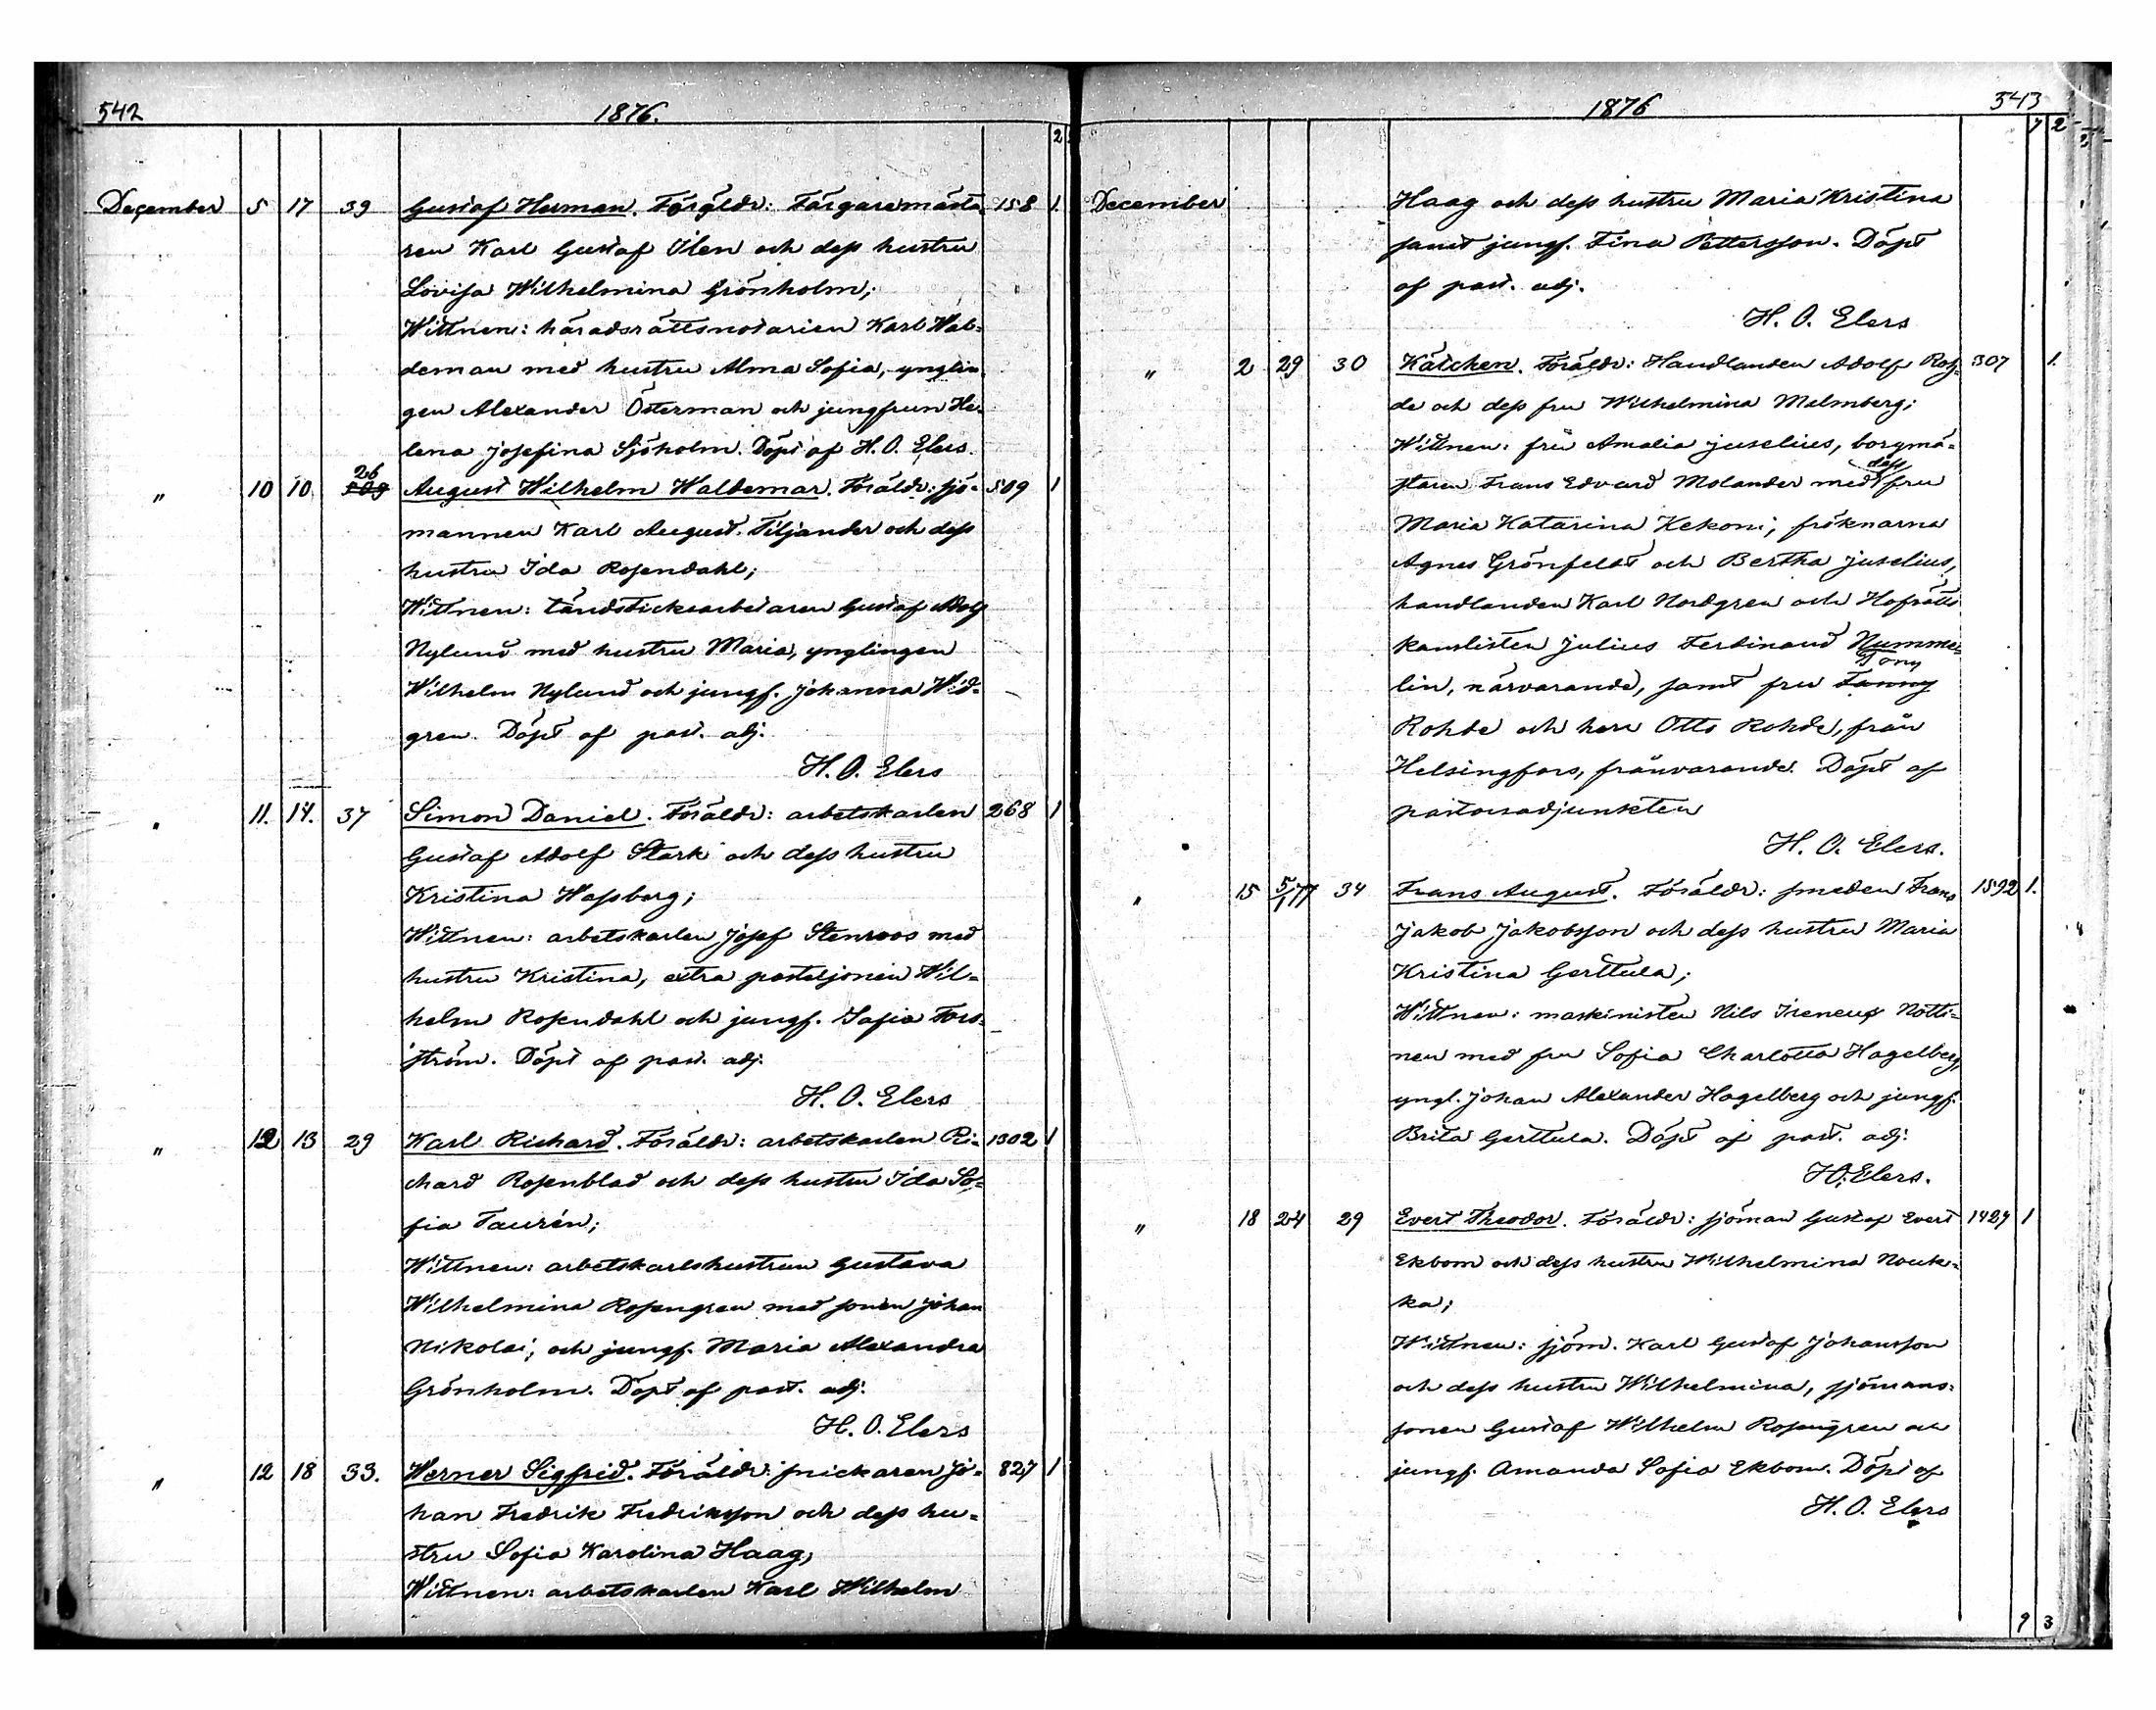 542 1876.
2
December 5 17 39 Gustaf Herman. Föräldr: Färgaremästa 158 1
ren Karl Gustaf Ilen och dess hustru
Lovisa Wilhelmina Grönholm;
Wittnen: häradsrättsnotarien Karl Wal=
deman med hustru Alma Sofia, ynglin
gen Alexander Österman och jungfrun He=
lena Josefina Sjöholm. Döpt af H. O. Elers.
26
" 10 10 509 August Wilhelm Waldemar. Föräldr: sjö= 509 1
mannen Karl August Tiljander och dess
hustru Ida Rosendahl;
Wittnen: tändsticksarbetaren Gustaf Adolf
Nylund med hustru Maria, ynglingen
Wilhelm Nylund och jungf. Johanna Wid=
gren. Döpt af past. adj.
H. O. Elers
" 11. 14. 37 Simon Daniel. Föräldr: arbetskarlen 268 1
Gustaf Adolf Stark och dess hustru
Kristina Hassberg;
Wittnen: arbetskarlen Josef Stenroos med
hustru Kristina, extra posteljonen Wil=
helm Rosendahl och jungf. Sofia Fors=
ström. Döpt af past. adj.
H. O. Elers
" 12 13 29 Karl Richard. Föräldr: arbetskarlen Ri= 1302 1
chard Rosenblad och dess hustru Ida So=
fia Taurén;
Wittnen: arbetskarlshustrun Gustava
Wilhelmina Rosengren med sonen Johan
Nikolai, och jungf. Maria Alexandra
Grönholm. Döpt af past. adj.
H. O. Elers
" 12 18 33. Werner Sigfrid. Föräldr: snickaren Jo= 827 1
han Fredrik Fredriksson och dess hu=
stru Sofia Karolina Haag;
Wittnen: arbetskarlen Karl Wilhelm
1876 543
7 2
December Haag och dess hustru Maria Kristina
samt jungf. Fina Pettersson. Döpt
af past. adj.
H. O. Elers
" 2 29 30 Kätchen. Föräldr: Handlanden Adolf Roh= 307 1.
de och dess fru Wilhelmina Malmberg;
Wittnen: fru Amalia Juselius, borgmä=
dess
staren Frans Edvard Molander med fru
Maria Katarina Kekoni, fröknarna
Agnes Grönfeldt och Bertha Juselius,
handlanden Karl Nordgren och Hofrätts
kanslisten Julius Ferdinand Numme=
Tony
lin, närvarande, samt fru Fanny
Rohde och herr Otto Rohde, från
Helsingfors, frånvarande. Döpt af
pastorsadjunkten
H. O. Elers.
" 15 5/1 77 34 Frans August. Föräldr: smeden Frans 1592 1.
Jakob Jakobsson och dess hustru Maria
Kristina Gerttula;
Wittnen: maskinisten Nils Ireneus Notti=
nen med fru Sofia Charlotta Hagelberg,
yngl. Johan Alexander Hagelberg och jungf.
Brita Gerttula. Döpt af past. adj.
H.O.Elers.
" 18 24 29 Evert Theodor. Föräldr: sjöman Gustaf Evert 1427 1
Ekbom och dess hustru Wilhelmina Nouk=
ka;
Wittnen: sjöm. Karl Gustaf Johansson
och dess hustru Wilhelmina, sjömans=
sonen Gustaf Wilhelm Rosengren och
jungf. Amanda Sofia Ekbom. Döpt af
H. O. Elers
7 3